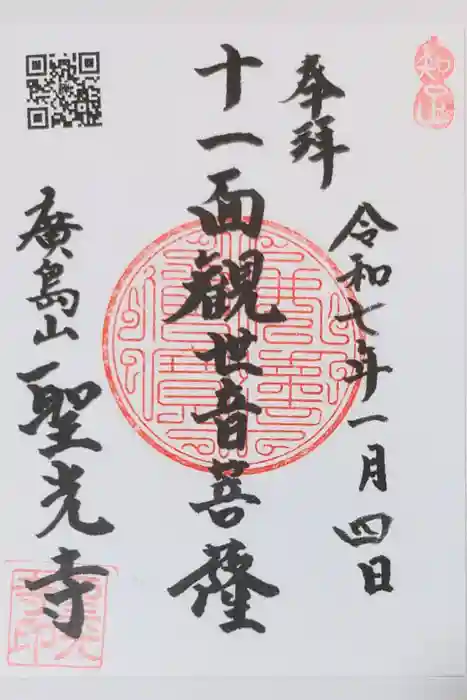 奉拝
令和七年一月四日
十一面観世音菩薩
廣島山
聖光寺
知足